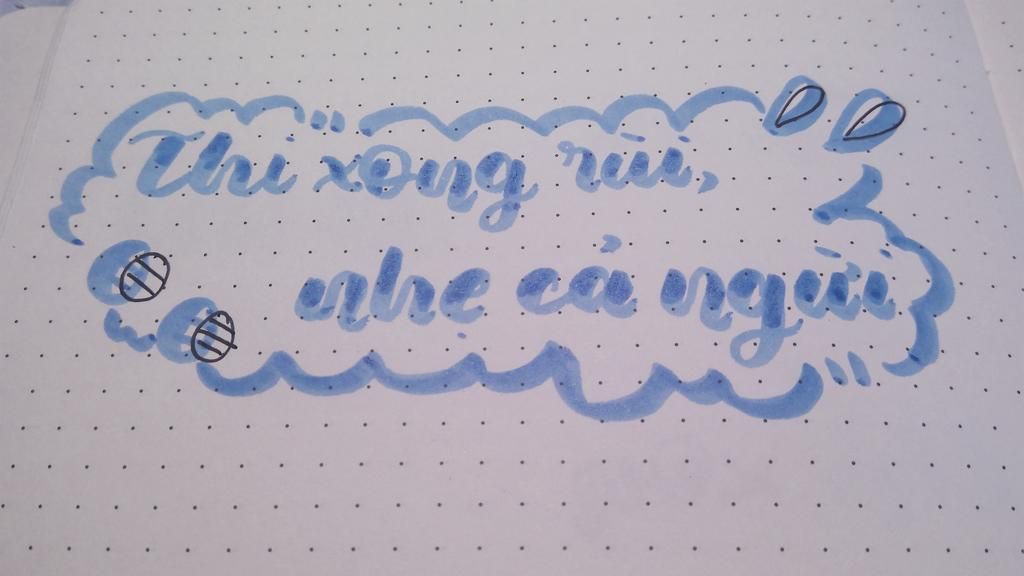 Thi xong rùi,
nhẹ cả ngừi